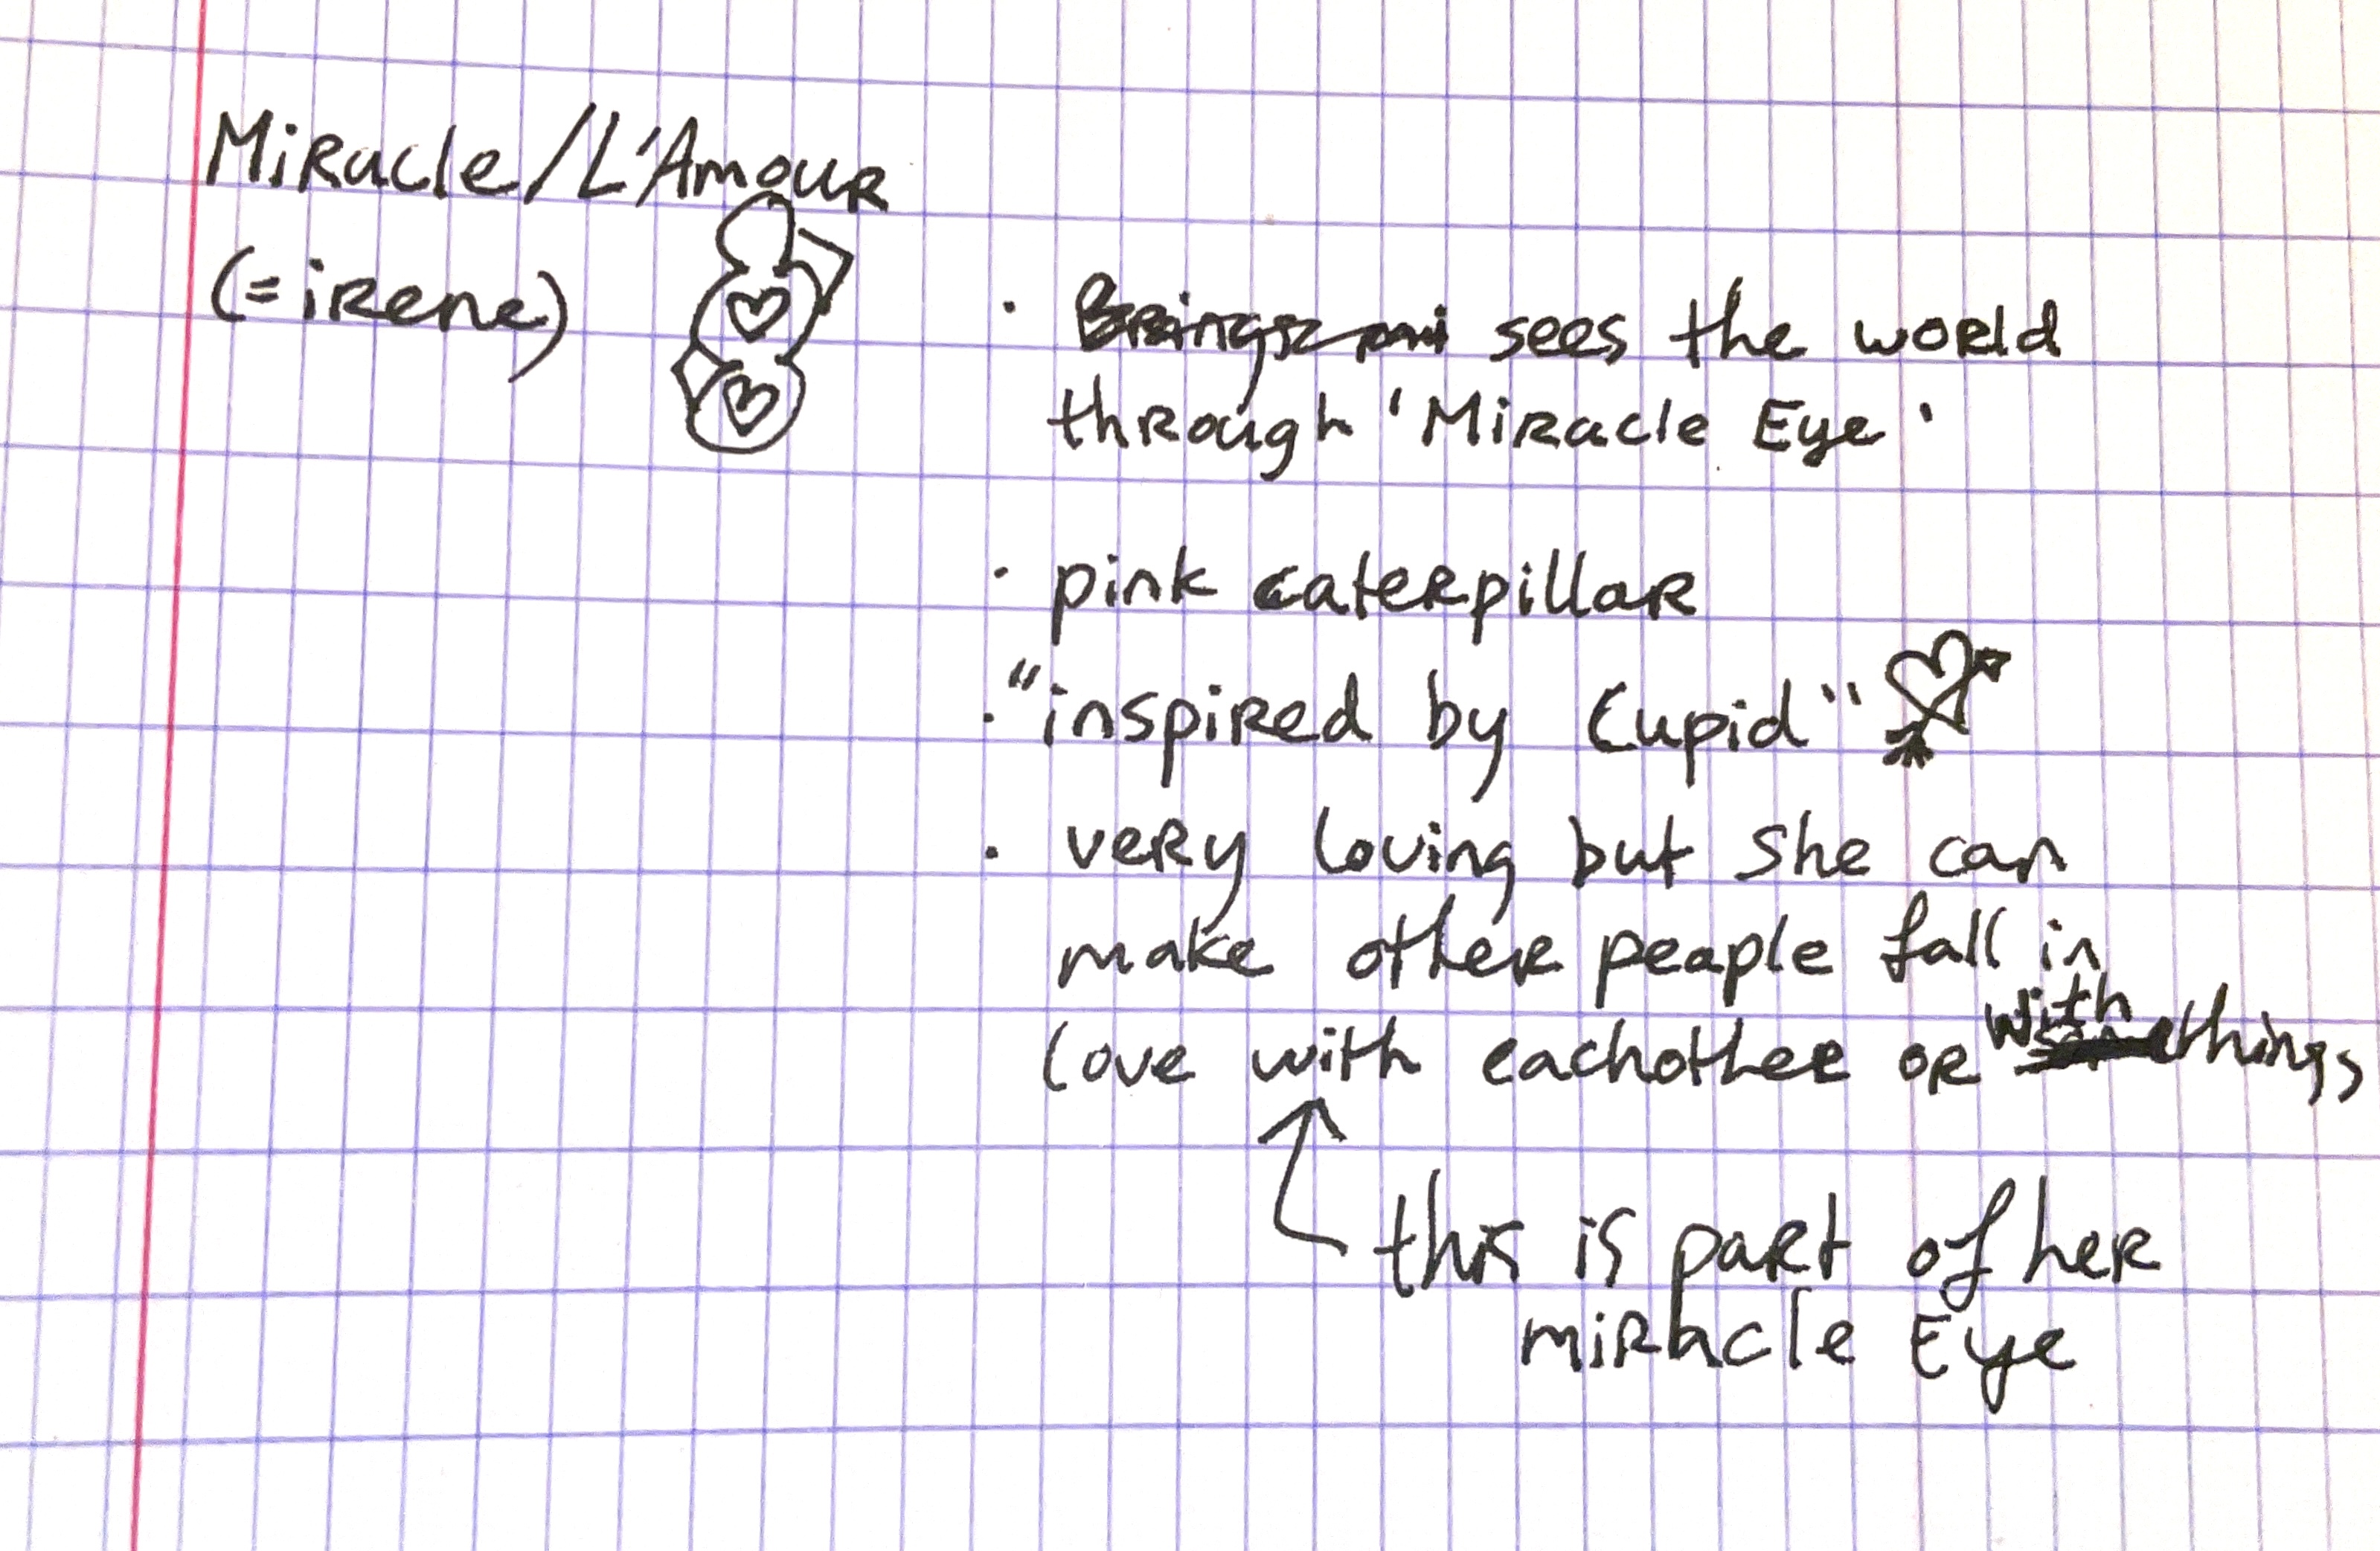 Miracle/L'Amour
(=irene)
· sees the world
through 'Miracle Eye'
· pink caterpillar
· "inspired by Cupid"
· very loving but she can
make other people fall in
love with eachother or with things
this is part of her
miracle Eye